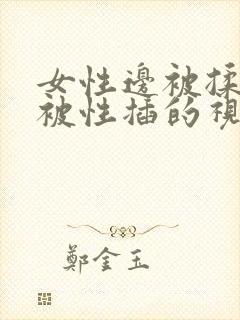 女性邊被揉
被性插的視
鄭金玉